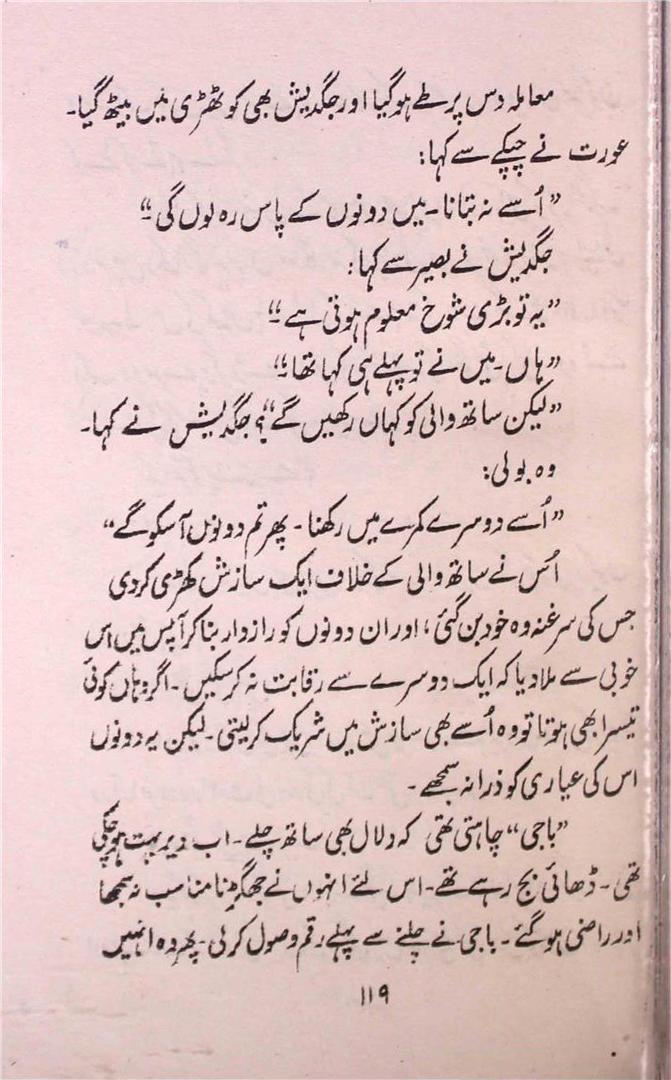 معاملہ دس پر طے ہوگیا اور جگدیش بھی کوٹھڑی میں بیٹھ گیا۔
عورت نے چپکے سے کہا:
”اُسے نہ بتانا۔ میں دونوں کے پاس رہ لوں گی“
جگدیش نے بصیر سے کہا:
”یہ تو بڑی شوخ معلوم ہوتی ہے“
”ہاں۔ میں نے تو پہلے ہی کہا تھا“
”لیکن ساتھ والی کو کہاں رکھیں گے“؟ جگدیش نے کہا۔
وہ بولی:
”اُسے دوسرے کمرے میں رکھنا۔ پھر تم دونوں آ سکو گے“
اُس نے ساتھ والی کے خلاف ایک سازش کھڑی کر دی
جس کی سرغنہ وہ خود بن گئی، اور ان دونوں کو رازدار بنا کر آپس میں اس
خوبی سے ملا دیا کہ ایک دوسرے سے رقابت نہ کر سکیں۔ اگر وہاں کوئی
تیسرا بھی ہوتا تو وہ اُسے بھی سازش میں شریک کر لیتی۔ لیکن یہ دونوں
اس کی عیاری کو ذرا نہ سمجھے۔
”باجی“ چاہتی تھی کہ دلال بھی ساتھ چلے۔ اب دیر بہت ہو چکی
تھی۔ ڈھائی بج رہے تھے۔ اس لئے انہوں نے جھگڑنا مناسب نہ سمجھا
اور راضی ہو گئے۔ باجی نے چلنے سے پہلے رقم وصول کر لی۔ پھر وہ انہیں
۱۱۹